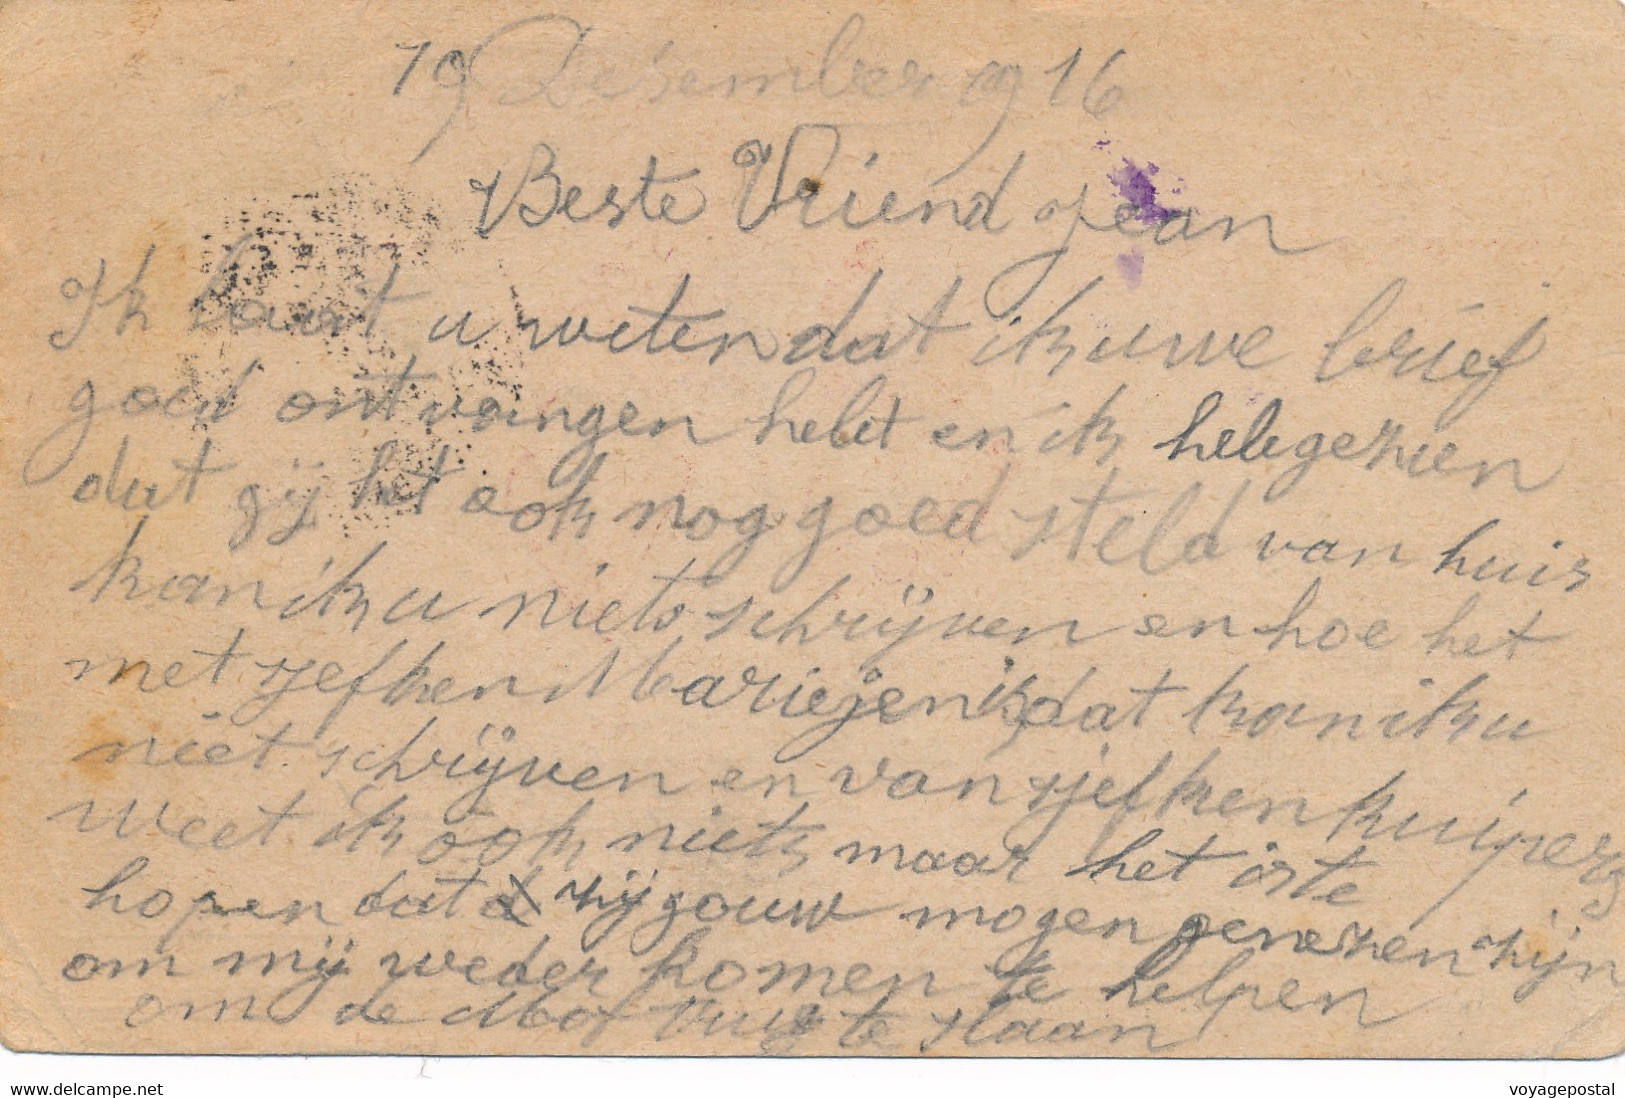 19 Desember 1916
Beste Vriend Jean
Ik laat u weten dat ik uwe brief
goed ontvangen hebt en ik heb gezien
dat gij het ook nog goed steld van huis
kan ik u niets schrijven en hoe het
met Jefken Mariejen is dat kan ik u
niet schrijven en van Jefken Kuijpers
weet ik ook niets maar het iste
hopen dat zij gouw mogen genezen zijn
om mij weder komen te helpen
om de Mof te slaan
www.delcampe.net
voyagepostal